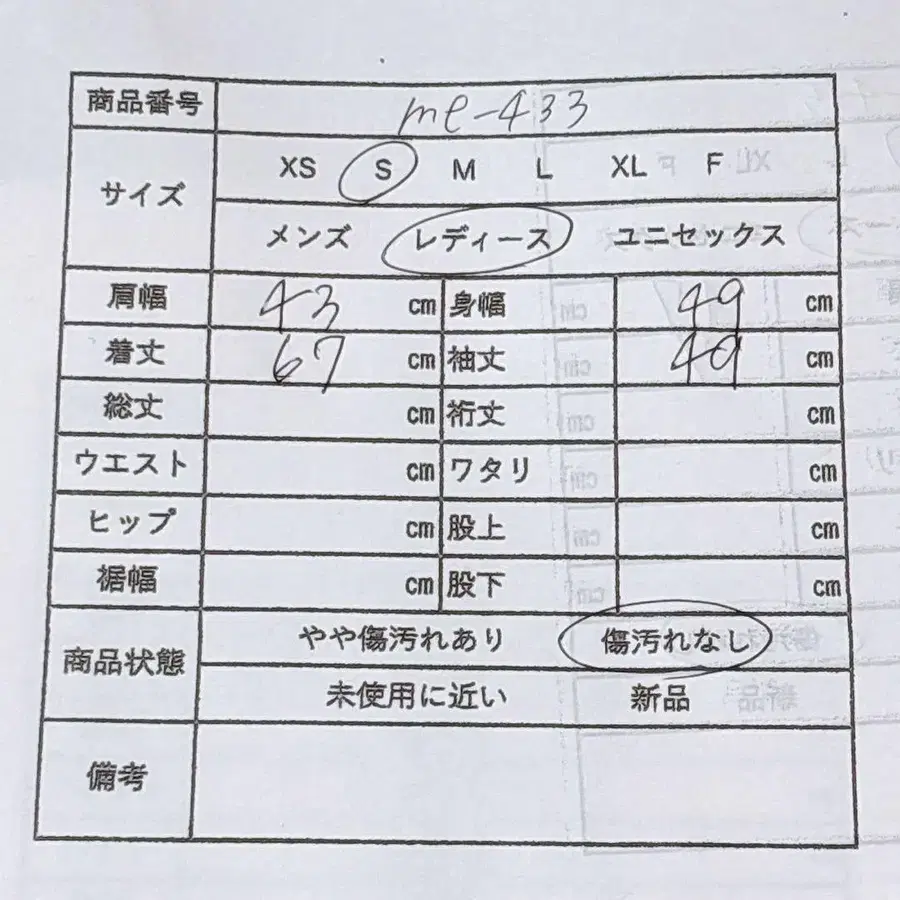 商品番号 me-433
サイズ XS S M L XL F
メンズ レディース ユニセックス
肩幅 43 cm 身幅 49 cm
着丈 67 cm 袖丈 49 cm
総丈 cm 裄丈 cm
ウエスト cm ワタリ cm
ヒップ cm 股上 cm
裾幅 cm 股下 cm
商品状態 やや傷汚れあり 傷汚れなし
未使用に近い 新品
備考